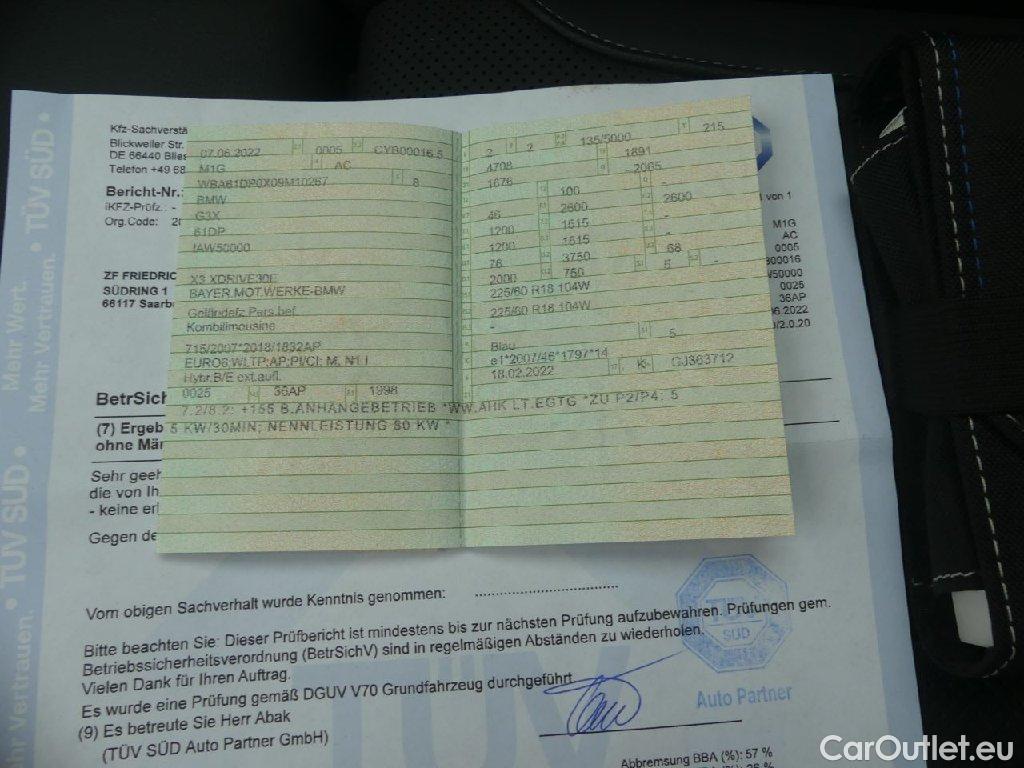 • Mehr Wert. Mehr Vertrauen. • TÜV SÜD •
TÜV SÜD •
Kfz-Sachverstä
Blickweiler Str.
DE 66440 Blies
Telefon +49 68
Bericht-Nr.:
iKFZ-Prüfz.: -
Org.Code: 20
ZF FRIEDRIC
SÜDRING 1
66117 Saarb
BetrSich
(7) Ergeb
ohne Män
Sehr geeh
die von Ih
- keine er
Gegen de
07.06.2022 0005 CYB00016 5
M1G AC
WBA61DP0X09M10267 8
BMW
G3X
61DP
!AW50000
X3 XDRIVE30E
BAYER.MOT.WERKE-BMW
Geländefz.Pers.bef.
Kombilimousine
715/2007*2018/1832AP
EURO6;WLTP;AP;PI/CI; M, N1 I
Hybr.B/E ext.aufl.
0025 36AP 1998
2 2 135/5000 215
4708 1891
1676 -2065
100 -
46 2600 2600
1200 1515 -
1200 1515 -
76 3750 68
2000 750 5 -
225/60 R18 104W
225/60 R18 104W
-
Blau 5
e1*2007/46*1797*14
18.02.2022 K GJ363712
7.2/8.2: +155 B.ANHÄNGEBETRIEB *WW.AHK LT.EGTG *ZU P2/P4: 5
5 KW/30MIN; NENNLEISTUNG 80 KW *
von 1
M1G
AC
0005
B00016
W50000
0025
36AP
06.2022
0/2.0.20
Vom obigen Sachverhalt wurde Kenntnis genommen: ........................
Bitte beachten Sie: Dieser Prüfbericht ist mindestens bis zur nächsten Prüfung aufzubewahren. Prüfungen gem.
Betriebssicherheitsverordnung (BetrSichV) sind in regelmäßigen Abständen zu wiederholen.
Vielen Dank für Ihren Auftrag.
Es wurde eine Prüfung gemäß DGUV V70 Grundfahrzeug durchgeführt
(9) Es betreute Sie Herr Abak
(TÜV SÜD Auto Partner GmbH)
TÜV
SÜD
Auto Partner
TÜV
Abbremsung BBA (%): 57 %
CarOutlet.eu